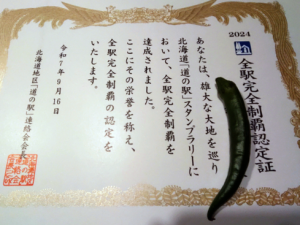 2024
全駅完全制覇認定証
あなたは、雄大な大地を巡り
北海道「道の駅」スタンプラリーに
おいて、全駅完全制覇を
達成されました。
ここにその栄誉を称え、
全駅完全制覇の認定を
いたします。
令和7年9月16日
北海道地区「道の駅」連絡会会長